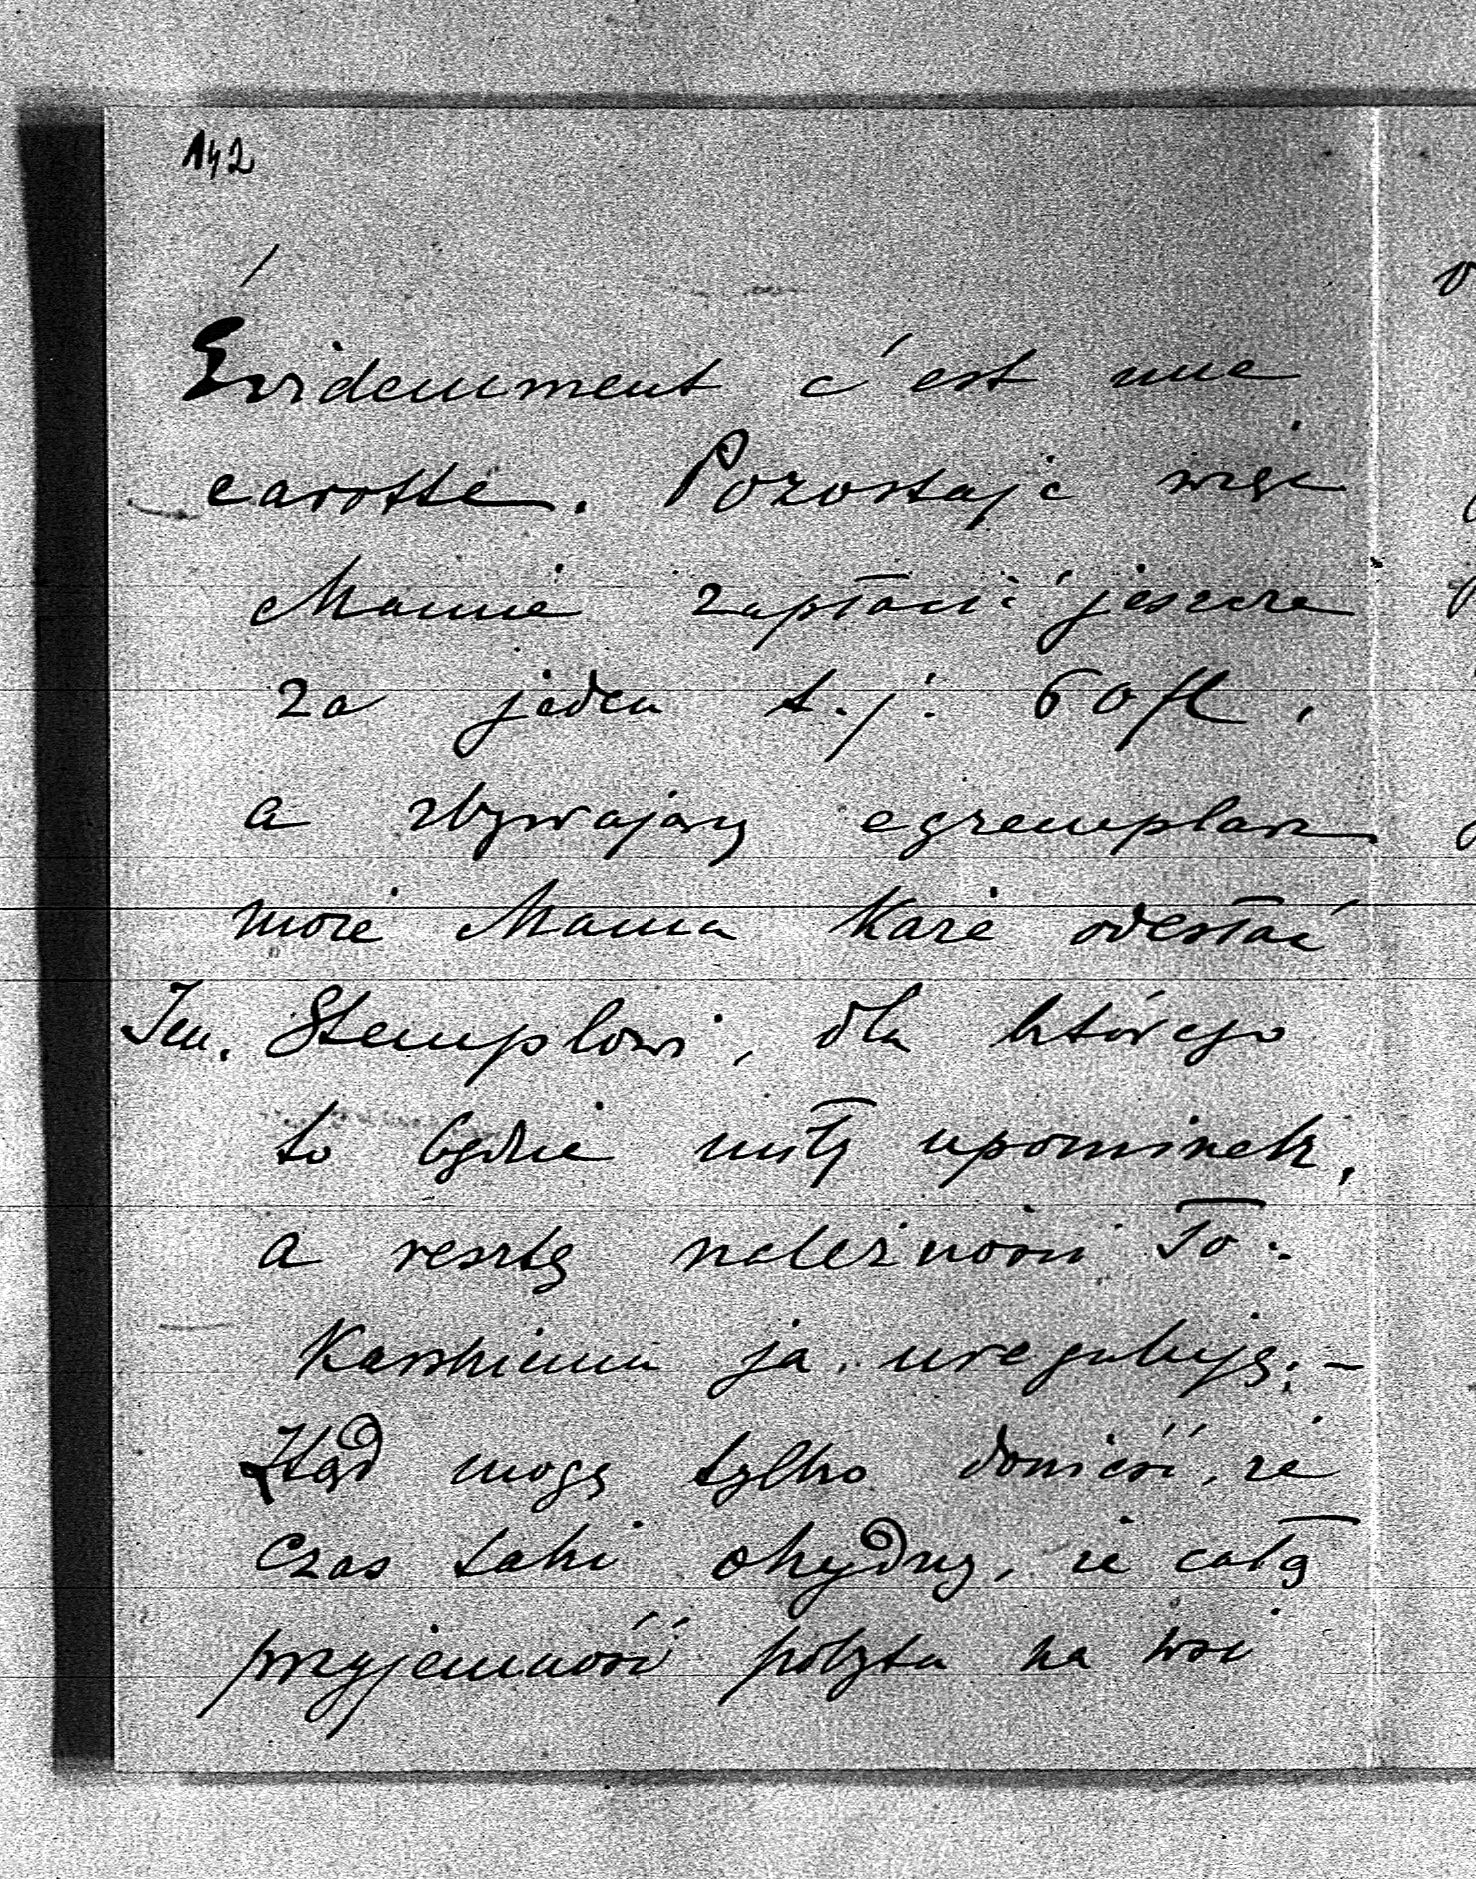 142
Évidemment c'est une
carotte. Pozostaje więc
Mamie zapłacić jeszcze
za jeden t.j. 60 fl,
a zbywający egzemplarz
może Mama każe odesłać
Jen. Stemplowi, dla którego
to będzie miły upominek,
a resztę należności To-
karskiemu ja ureguluję. –
Ztąd mogę tylko donieść, że
czas taki ohydny, że całą
przyjemność pobytu na wsi